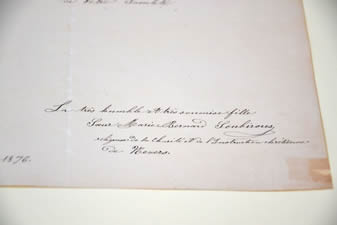 de Votre Sainteté
La très humble et très soumise fille
Sœur Marie Bernard Soubirous,
religieuse de la Charité et de l'Instruction chrétienne
de Nevers.
1876